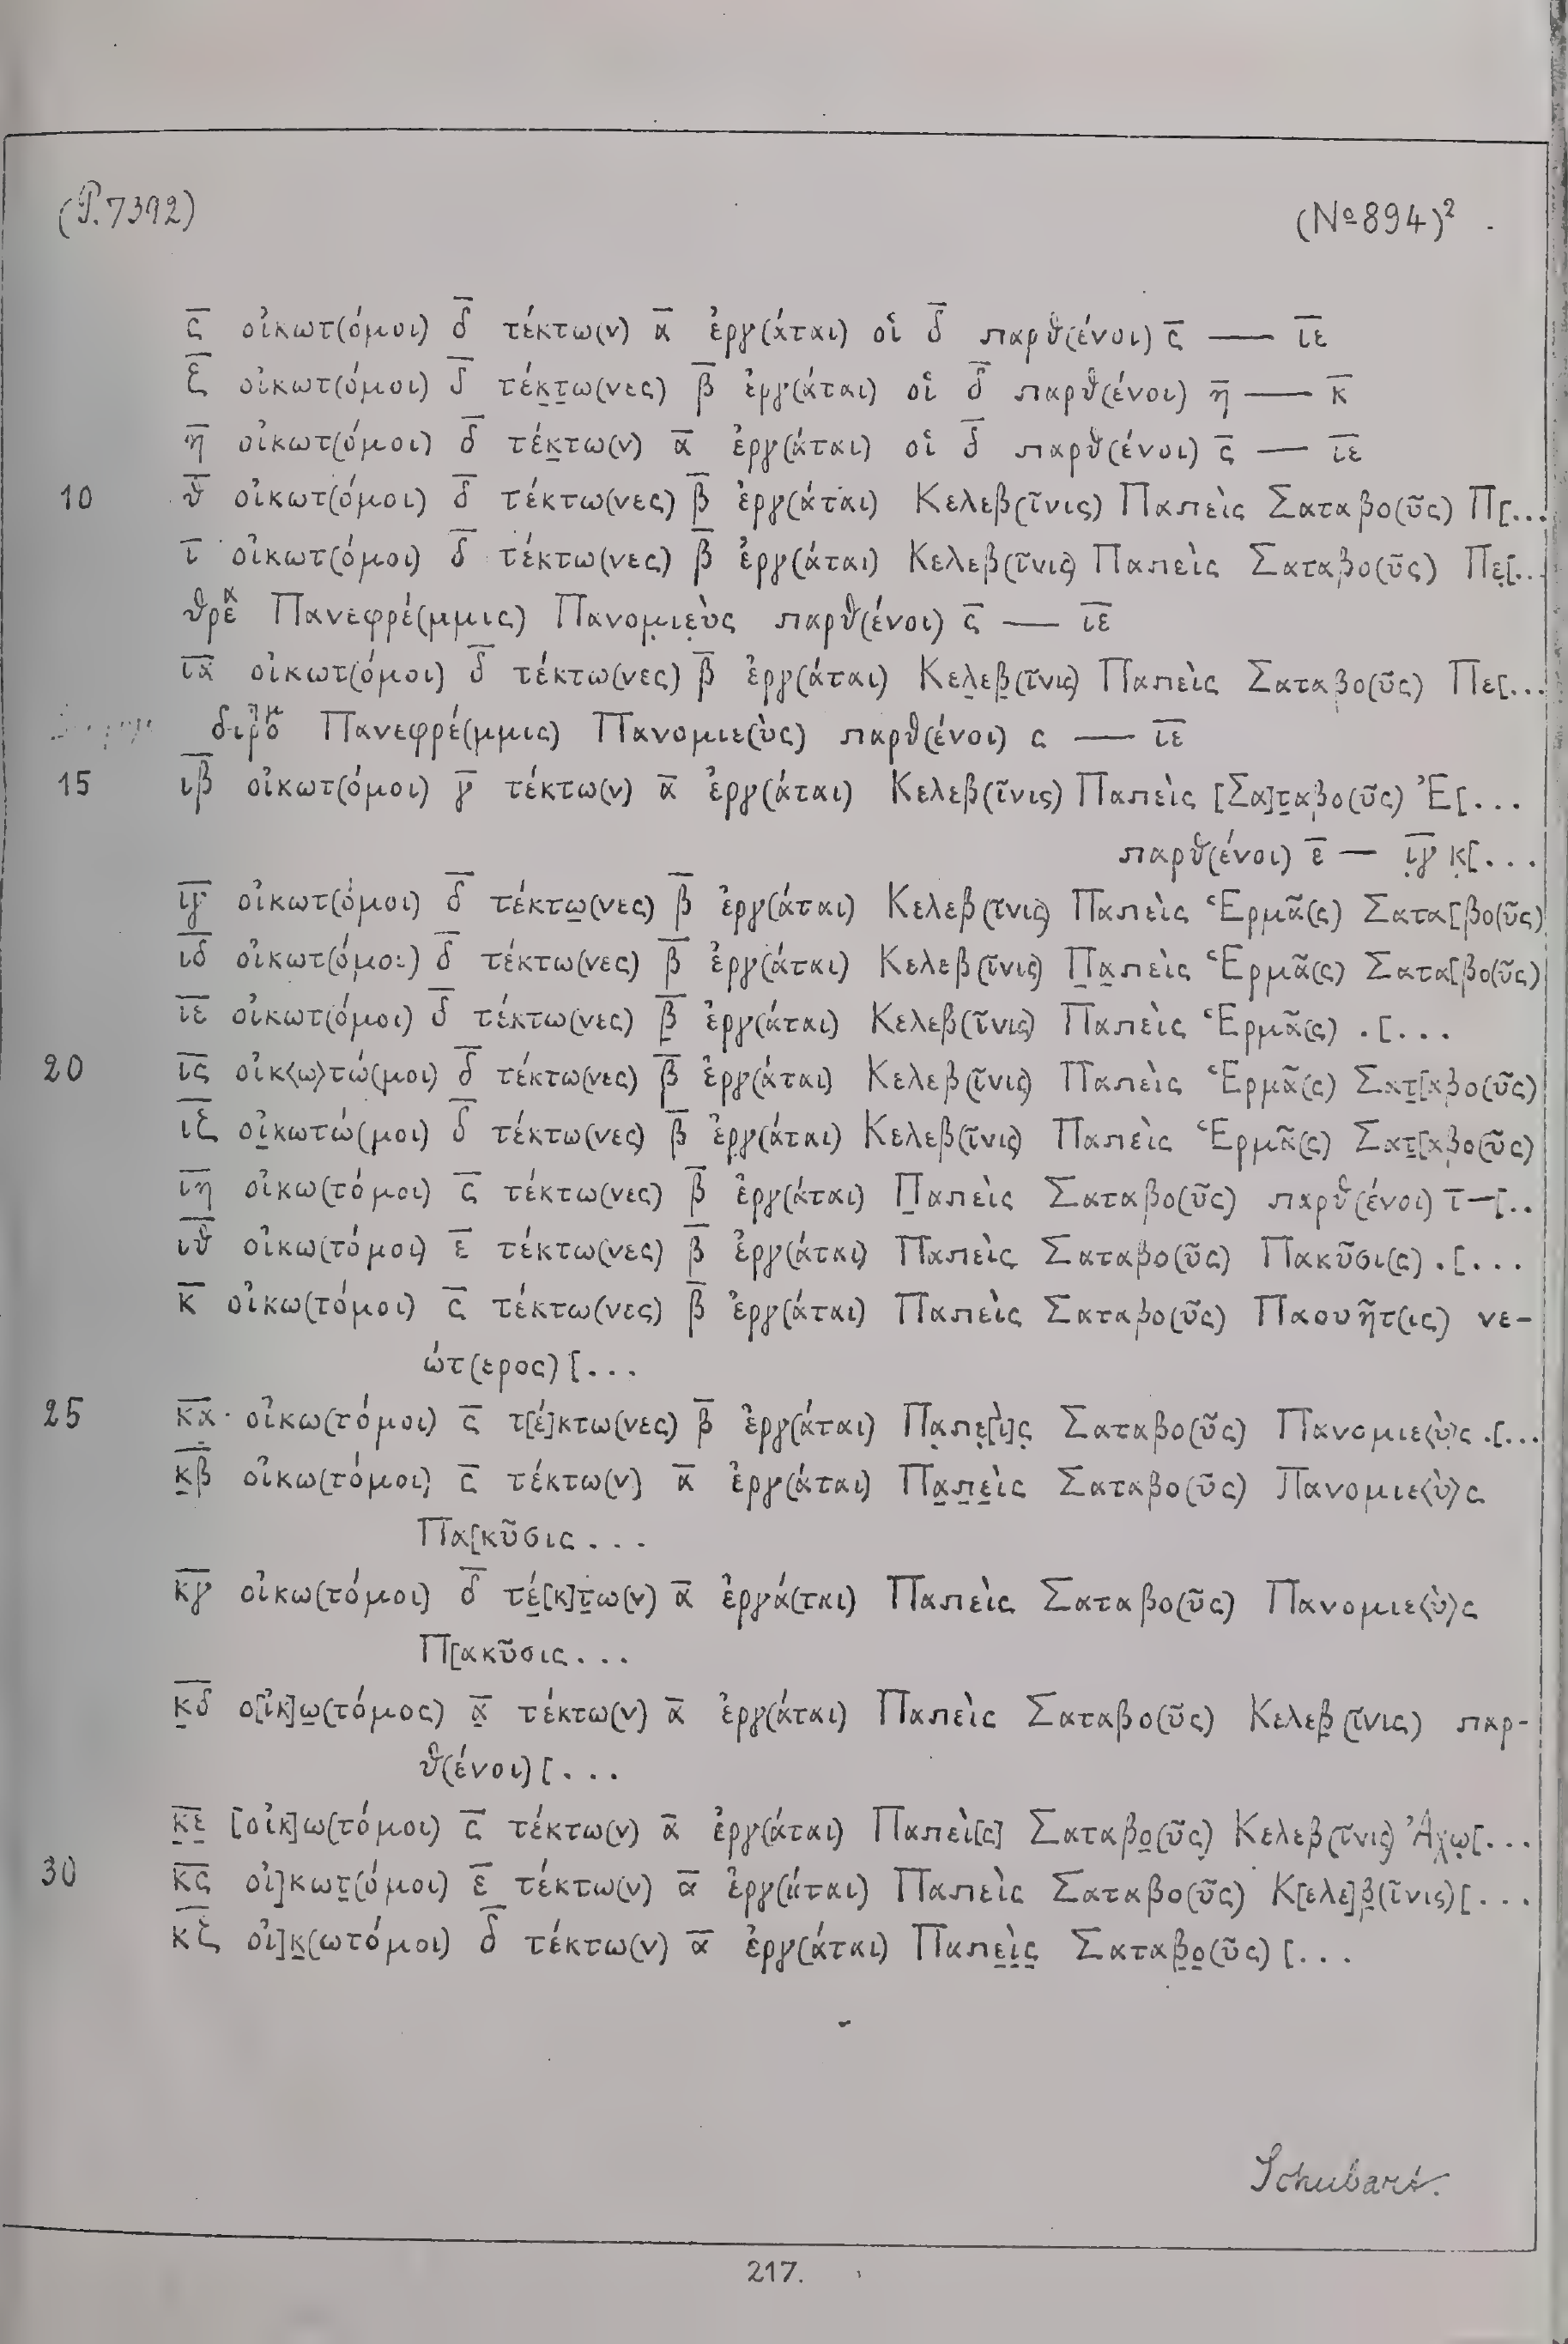 (P.7392) (№894)²
ς̅ οἰκωτ(όμοι) δ̅ τέκτω(ν) α̅ ἐργ(άται) οἱ δ̅ παρθ(ένοι) ς̅ — ι̅ε̅
ζ̅ οἰκωτ(όμοι) δ̅ τέκ̣τ̣ω(νες) β̅ ἐργ(άται) οἱ δ̅ παρθ(ένοι) η̅ — κ̅
η̅ οἰκωτ(όμοι) δ̅ τέκ̣τω(ν) α̅ ἐργ(άται) οἱ δ̅ παρθ(ένοι) ς̅ — ι̅ε̅
10 θ̅ οἰκωτ(όμοι) δ̅ τέκτω(νες) β̅ ἐργ(άται) Κελεβ(ῖνις) Παπεὶς Σαταβο(ῦς) Π[...
ι̅ οἰκωτ(όμοι) δ̅ τέκτω(νες) β̅ ἐργ(άται) Κελεβ(ῖνις) Παπεὶς Σαταβο(ῦς) Πε̣[...
θρε Πανεφρέ(μμις) Πανομ̣ιε̣ὺς παρθ(ένοι) ς̅ — ι̅ε̅
ι̅α̅ οἰκωτ(όμοι) δ̅ τέκτω(νες) β̅ ἐργ(άται) Κελ̣εβ̣(ῖνις) Παπεὶς Σαταβο(ῦς) Πε[...
Πανεφρέ(μμις) Πανομιε(ὺς) παρθ(ένοι) ς — ι̅ε̅
15 ι̅β̅ οἰκωτ(όμοι) γ̅ τέκτω(ν) α̅ ἐργ(άται) Κελεβ(ῖνις) Παπεὶς [Σα]τ̣αβο(ῦς) Ἐ[...
παρθ(ένοι) ε̅ — ι̣̅γ̅ κ̣[...
ι̅γ̅ οἰκωτ(όμοι) δ̅ τέκτω̣(νες) β̅ ἐργ(άται) Κελεβ(ῖνις) Παπεὶς Ἑρμᾶ(ς) Σατα[βο(ῦς)
ι̅δ̅ οἰκωτ(όμοι) δ̅ τέκτω(νες) β̅ ἐργ(άται) Κελεβ(ῖνις) Π̣α̣πεὶς Ἑρμᾶ(ς) Σατα[βο(ῦς)
ι̅ε̅ οἰκωτ(όμοι) δ̅ τέκτω(νες) β̣̅ ἐργ(άται) Κελεβ(ῖνις) Παπεὶς Ἑρμᾶ(ς) .[...
20 ι̅ς̅ οἰκ⟨ω⟩τώ(μοι) δ̅ τέκτω(νες) β̣̅ ἐργ(άται) Κελεβ(ῖνις) Παπεὶς Ἑρμᾶ(ς) Σατ̣[αβο(ῦς)
ι̅ζ̅ οἰ̣κωτώ(μοι) δ̅ τέκτω(νες) β̅ ἐργ(άται) Κελεβ(ῖνις) Παπεὶς Ἑρμᾶ(ς) Σατ̣[αβο(ῦς)
ι̅η̅ οἰκω(τόμοι) ς̅ τέκτω(νες) β̅ ἐργ(άται) Π̣απεὶς Σαταβο(ῦς) παρθ(ένοι) ι̅ —[..
ι̅θ̅ οἰκω(τόμοι) ε̅ τέκτω(νες) β̅ ἐργ(άται) Παπεὶς Σαταβο(ῦς) Πακῦσι(ς) .[...
κ̅ οἰκω(τόμοι) ς̅ τέκτω(νες) β̅ ἐργ(άται) Παπεὶς Σαταβο(ῦς) Παουῆτ(ις) νε-
ώτ(ερος) [...
25 κ̅α̅ οἰκω(τόμοι) ς̅ τ[έ]κτω(νες) β̅ ἐργ(άται) Πα̣πε̣[ὶ]ς̣ Σαταβο(ῦς) Πανομιε⟨ὺ⟩ς .[...
κ̣̅β̅ οἰκω(τόμοι) ς̅ τέκτω(ν) α̅ ἐργ(άται) Πα̣π̣ε̣ὶς Σαταβο(ῦς) Πανομιε⟨ὺ⟩ς
Πα[κῦσις...
κ̅γ̅ οἰκω(τόμοι) δ̅ τέ̣[κ]τ̣ω(ν) α̅ ἐργά(ται) Παπεὶς Σαταβο(ῦς) Πανομιε⟨ὺ⟩ς
Π[ακῦσις...
κ̣̅δ̅ ο[ἰκ]ω̣(τόμος) α̣̅ τέκτω(ν) α̅ ἐργ(άται) Παπεὶς Σαταβο(ῦς) Κελεβ̣(ῖνις) παρ-
θ(ένοι) [...
κ̣̅ε̣̅ [οἰκ]ω(τόμοι) ς̅ τέκτω(ν) α̅ ἐργ(άται) Παπεὶ[ς] Σαταβο̣(ῦς) Κελεβ(ῖνις) Ἀχω̣[...
30 κ̅ς̅ οἰ]κωτ̣(όμοι) ε̅ τέκτω(ν) α̅ ἐργ(άται) Παπεὶς Σαταβο(ῦς) Κ[ελε]β̣(ῖνις) [...
κ̅ζ̅ οἰ]κ̣(ωτόμοι) δ̅ τέκτω(ν) α̅ ἐργ(άται) Παπε̣ὶ̣ς̣ Σαταβ̣ο̣(ῦς) [...
Schubart.
217.